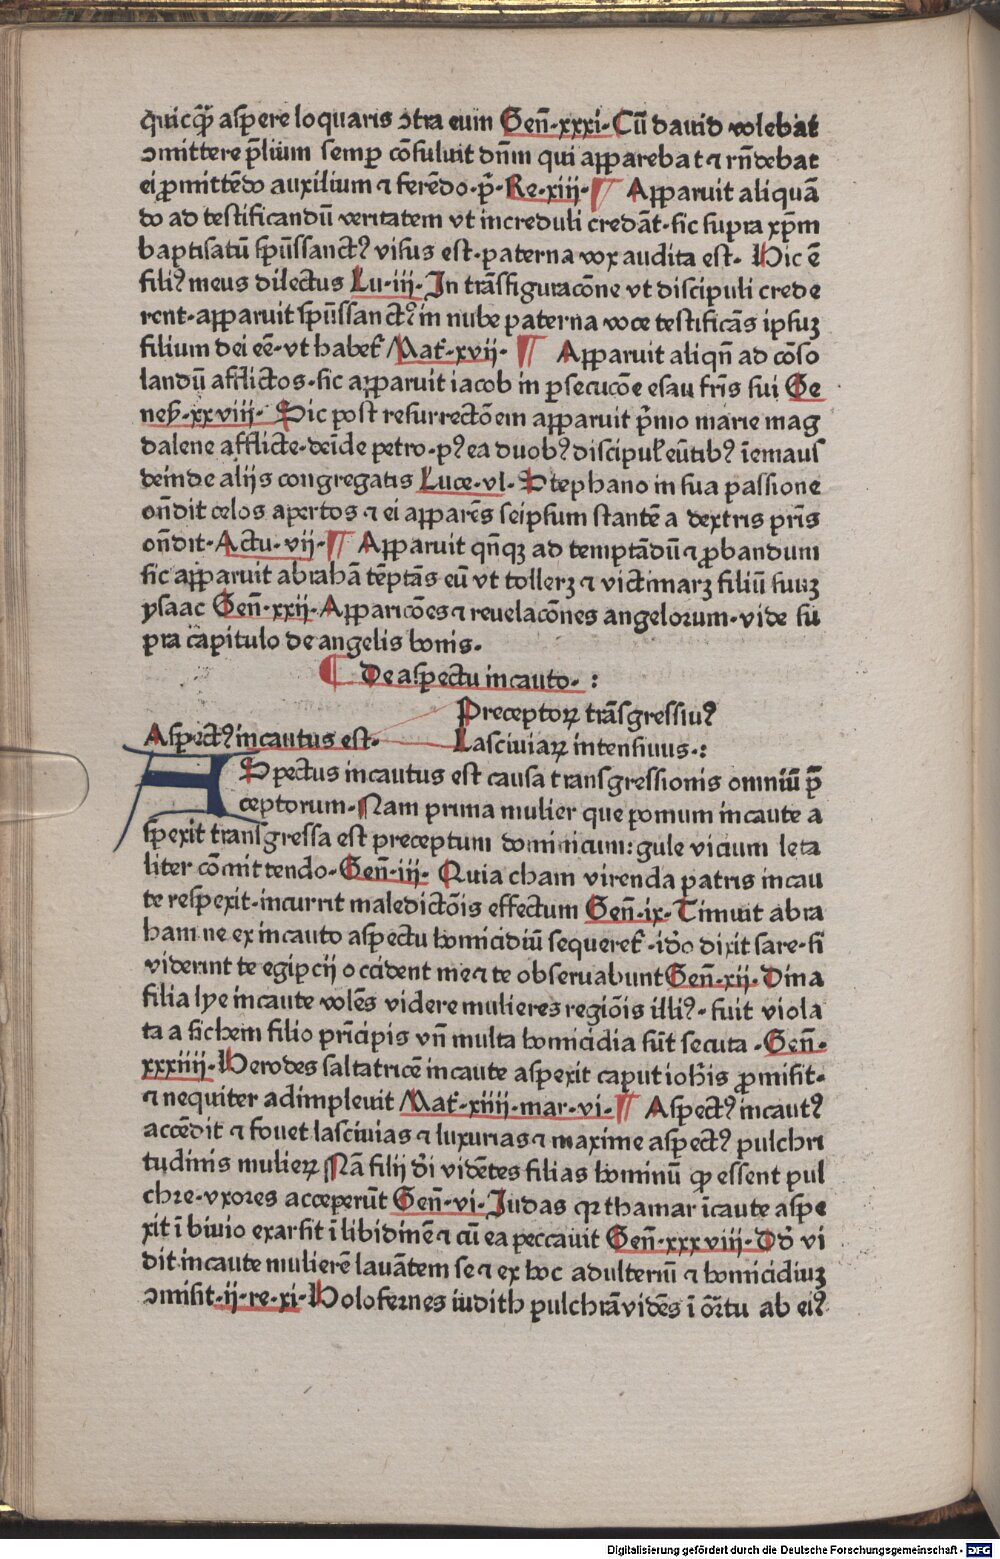 quicq̄ꝫ aſpere loquaris ↄtra eum Geñ·xxxi·Cū dauid volebat
ↄmittere p̄lium semꝑ cōſuluit dn̄m qui apparebat ⁊ rn̄debat
ei ꝓmittēdo auxilium ⁊ ferēdo·p̄·Re·xiij·¶ Apparuit aliquā
do ad teſtificandū veritatem vt increduli credāt·ſic ſupra xp̄m
baptiſatū ſpūſſanctꝰ viſus eſt·paterna vox audita eſt· Hic ē
filiꝰ meus dilectus Lu·iij·In trāſfiguracōne vt diſcipuli crede
rent·apparuit ſpūſſanctꝰ in nube paterna voce teſtificās ipſuꝫ
filium dei eē·vt habet̄ Mat̄·xvij· ¶ Apparuit aliqn̄ ad cōſo
landū afflictos·ſic apparuit iacob in ꝑſecucōe eſau fr̄is ſui Ge
neſ̄·xxviij· Sic poſt reſurrectōem apparuit p̄mo marie mag
dalene afflicte·deīde petro·pꝰ ea duobꝰ diſcipul̄ eūtibꝰ ī emauſ
deinde alijs congregatis Luce·vl·Stephano in ſua paſſione
on̄dit celos apertos ⁊ ei apparēs ſeipſum ſtantē a dextris pr̄is
on̄dit·Actu·vij·¶ Apparuit qn̄qꝫ ad temptādū ⁊ ꝓbandum
ſic apparuit abrahā tēptās eū vt tollerꝫ ⁊ victimarꝫ filiū ſuuꝫ
yſaac Geñ·xxij·Apparicōes ⁊ reuelacōnes angelorum·vide ſu
pra capitulo de angelis bonis·
¶ De aſpectu incauto· :
Preceptoꝝ trāſgreſſiuꝰ
Aſpectꝰ incautus eſt·
Laſciuiaꝝ intenſiuus·:
ASpectus incautus eſt cauſa tranſgreſſionis omniū p̄
ceptorum·Nam prima mulier que pomum incaute a
ſpexit tranſgreſſa eſt preceptum dominicum:gule vicium leta
liter cōmittendo·Geñ·iij· Quia cham virenda patris incau
te reſpexit·incurrit maledictōis effectum Geñ·ix·Timuit abra
ham ne ex incauto aſpectu homicidiū ſequeret̄·idō dixit ſare·ſi
viderint te egipcij occident me ⁊ te obſeruabunt Geñ·xij·Dina
filia lye incaute volēs videre mulieres regiōis illiꝰ·fuit viola
ta a ſichem filio prīcipis vn̄ multa homicidia ſūt ſecuta ·Geñ·
xxxiiij·Herodes ſaltatricē incaute aſpexit caput ioh̄is ꝓmiſit·
⁊ nequiter adimpleuit Mat̄·xiiij·mar·vi·¶ Aſpectꝰ incautꝰ
accēdit ⁊ fouet laſciuias ⁊ luxurias ⁊ maxime aſpectꝰ pulchri
tudinis mulieꝝ Nā filij d̄i vidētes filias hominū ꝙ eſſent pul
chre·vxores acceperūt Geñ·vi·Judas qꝛ thamar īcaute aſpe
xit ī biuio exarſit ī libidinē ⁊ cū ea peccauit Geñ·xxxviij·Dd̄ vi
dit incaute mulierē lauātem ſe ⁊ ex hoc adulteriū ⁊ homicidiuꝫ
ↄmiſit·ij·re·xi·Holofernes iudith pulchrā vidēs ī ōrtu ab eiꝰ
Digitalisierung gefördert durch die Deutsche Forschungsgemeinschaft - DFG